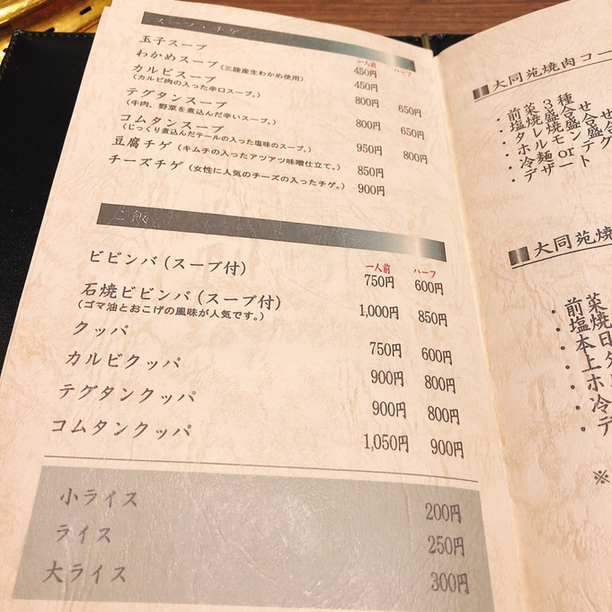 スープ・チゲ
一人前 ハーフ
玉子スープ 450円
わかめスープ(三陸産生わかめ使用) 450円
カルビスープ 800円 650円
(カルビ肉の入った辛口スープ。)
テグタンスープ 800円 650円
(牛肉、野菜を煮込んだ辛いスープ。)
コムタンスープ 950円 800円
(じっくり煮込んだテールの入った塩味のスープ。)
豆腐チゲ(キムチの入ったアツアツ味噌仕立て。) 850円
チーズチゲ(女性に人気のチーズの入ったチゲ。) 900円
ご飯
一人前 ハーフ
ビビンバ(スープ付) 750円 600円
石焼ビビンバ(スープ付) 1,000円 850円
(ゴマ油とおこげの風味が人気です。)
クッパ 750円 600円
カルビクッパ 900円 800円
テグタンクッパ 900円 800円
コムタンクッパ 1,050円 900円
小ライス 200円
ライス 250円
大ライス 300円
■大同苑焼肉コー
・前菜3種
・塩焼盛合せ
・タレ焼盛合せ
・ホルモン盛合
・冷麺 or テグ
・デザート
■大同苑焼
・前菜
・塩焼
・本日
・上タ
・ホ
・冷
・デ
※